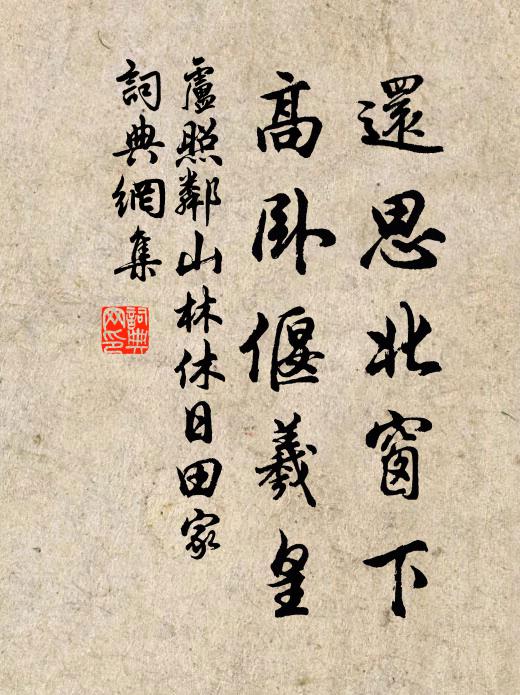 還思北窗下
高卧偃羲皇
盧照鄰山林休日田家
詞典網集
詞典網印